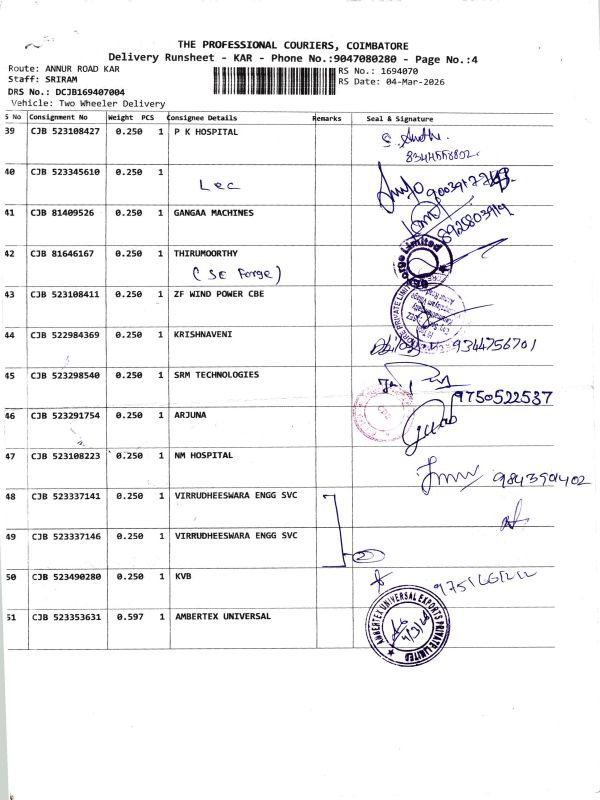 THE PROFESSIONAL COURIERS, COIMBATORE
Delivery Runsheet - KAR - Phone No.:9047080280 - Page No.:4
Route: ANNUR ROAD KAR
RS No.: 1694070
Staff: SRIRAM
RS Date: 04-Mar-2026
DRS No.: DCJB169407004
Vehicle: Two Wheeler Delivery
S No Consignment No Weight PCS Consignee Details Remarks Seal & Signature
39 CJB 523108427 0.250 1 P K HOSPITAL
8344558802
40 CJB 523345610 0.250 1
Lec
41 CJB 81409526 0.250 1 GANGAA MACHINES
42 CJB 81646167 0.250 1 THIRUMOORTHY
(SE Forge)
43 CJB 523108411 0.250 1 ZF WIND POWER CBE
44 CJB 522984369 0.250 1 KRISHNAVENI 9344756701
45 CJB 523298540 0.250 1 SRM TECHNOLOGIES
9750522537
46 CJB 523291754 0.250 1 ARJUNA
47 CJB 523108223 0.250 1 NM HOSPITAL
9843901402
48 CJB 523337141 0.250 1 VIRRUDHEESWARA ENGG SVC
49 CJB 523337146 0.250 1 VIRRUDHEESWARA ENGG SVC
2
50 CJB 523490280 0.250 1 KVB
51 CJB 523353631 0.597 1 AMBERTEX UNIVERSAL
AMBERTEX UNIVERSAL EXPORTS PRIVATE LIMITED